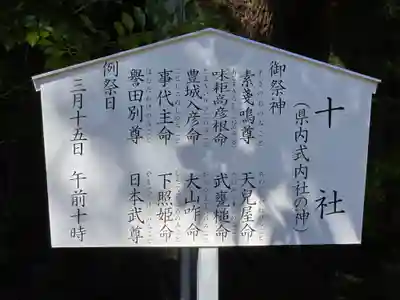 十社
(県内式内社の神)
御祭神
素戔鳴尊 天兒屋命
味耜高彦根命 武甕槌命
豊城入彦命 大山咋命
事代主命 下照姫命
誉田別尊 日本武尊
例祭日
三月十五日 午前十時